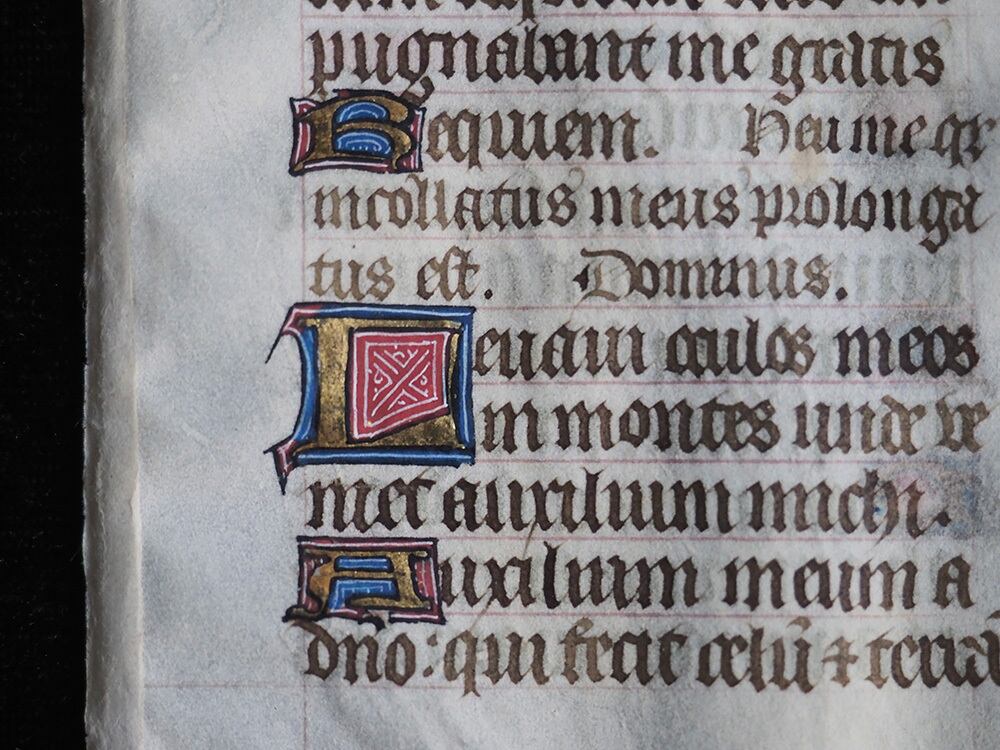 pugnabant me gratis
Requiem. Heu me qr
incollatus meus prolonga
tus est. Dominus.
Leuaui oculos meos
in montes unde ve
niet auxilium michi.
Auxilium meum a
dño: qui fecit celū ⁊ terrā